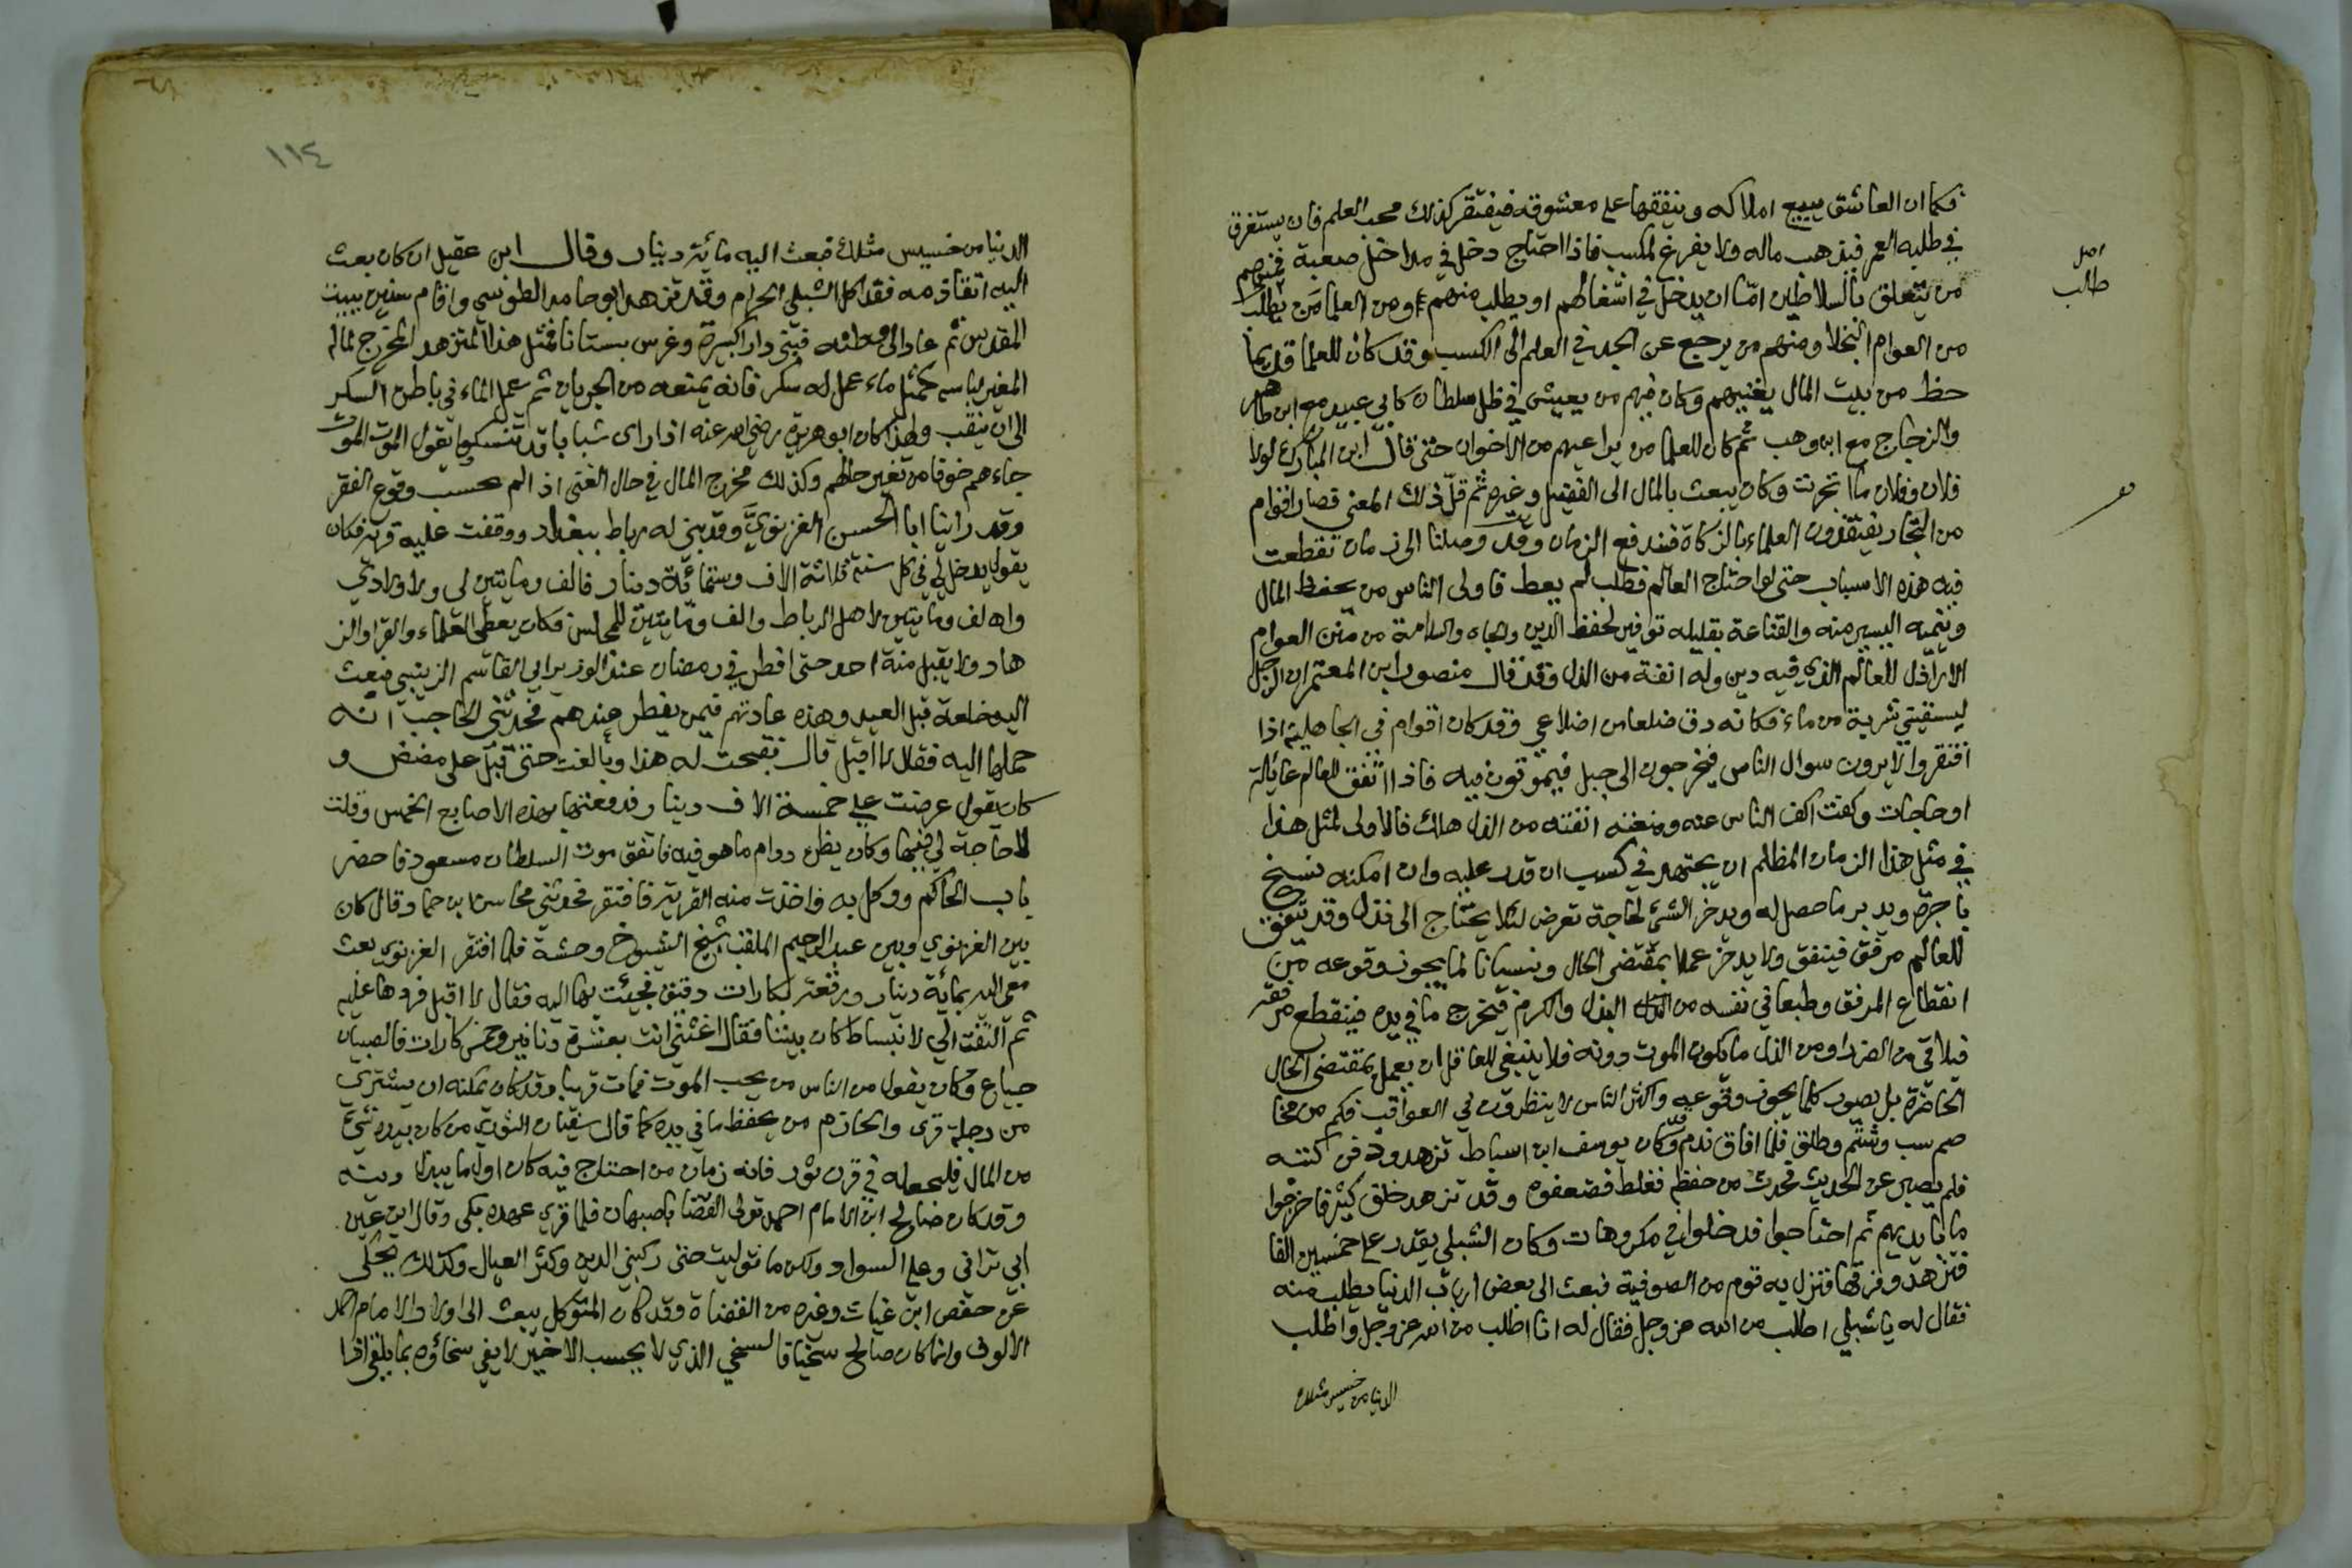 فكما ان العاشق يبيع املاكه وينفقها على معشوقه فيفتقر كذلك محب العلم فان يستغرق
في طلبه العمر فيذهب ماله ولا يفرغ لمكسب فاذا احتاج دخل في مداخل صعبة فمنهم
من يتعلق بالسلاطين امّا ان يدخل في اشغالهم او يطلب منهم ومن العلما من يطلب
من العوام البخلا ومنهم من يرجع عن الجد في العلم الى الكسب وقد كان للعلما قديما
حظ من بيت المال يغنيهم وكان فيهم من يعيش في ظل سلطان كابي عبيد مع ابن طاهر
والزجاج مع ابن وهب ثم كان للعلما من يراعيهم من الاخوان حتى قال ابن المبارك لولا
فلان وفلان ما اتجرت وكان يبعث بالمال الى الفضيل وغيره ثم قلّ ذلك المعنى فصار اقوام
من التجار يفتقدون العلماء بالزكاة فيندفع الزمان وقد وصلنا الى زمان تقطعت
فيه هذه الاسباب حتى لو احتاج العالم فطلب لم يعط فاولى الناس من يحفظ المال
وينميه اليسير منه والقناعة بقليله توفير لحفظ الدين والجاه والسلامة من منن العوام
الاراذل للعالم الذي فيه دين وله انفة من الذل وقد قال منصور ابن المعتمر ان الرجل
ليسقيني شربة من ماء فكانه دق ضلعا من اضلاعي وقد كان اقوام في الجاهلية اذا
افتقروا لا يرون سوال الناس فيخرجون الى جبل فيموتون فيه فاذا اتفق للعالم عائلة
او حاجات وكفت اكف الناس عنه ومنعته انفته من الذل هلك فالاولى لمثل هذا
في مثل هذا الزمان المظلم ان يجتهد في كسب ان قدر عليه وان امكنه نسخ
باجرة ويدبر ما حصل له ويدخر الشئ لحاجة تعرض لئلا يحتاج الى نذل وقد يتفق
للعالم مرفق فينفق ولا يدخر عملا بمقتضى الحال ونسيانا لما يجوز وقوعه من
انقطاع المرفق وطبعا في نفسه من البذل والكرم فيخرج ما في يده فينقطع مرفقه
فيلاقى من الضر او من الذل ما يكون الموت دونه فلا ينبغي للعاقل ان يعمل بمقتضى الحال
الحاضرة بل يصور كلما يجوز وقوعه واكثر الناس لا ينظرون في العواقب فكم من مخا
صم سب وشتم وطلق فلما افاق ندم وكان يوسف ابن اسباط تزهد ودفن كتبه
فلم يصبر عن الحديث فحدث من حفظه فغلط فضعفوه وقد تزهد خلق كثير فاخرجوا
ما بايديهم ثم احتاجوا فدخلوا في مكروهات وكان الشبلي يقدر على خمسين الفا
فتزهد وفرقها فنزل به قوم من الصوفية فبعث الى بعض ارباب الدنيا يطلب منه
فقال له يا شبلي اطلب من الله عز وجل فقال له انا اطلب من الله عز وجل واطلب
الدنيا من خسيس مثلك
اصل
طالب
١١٤
الدنيا من خسيس مثلك فبعث اليه مائة دينار وقال ابن عقيل ان كان بعث
اليه اتقاذمه فقد اكل الشبلي الحرام وقد تزهد ابو حامد الطوسي واقام سنين ببيت
المقدس ثم عاد الى وطنه فبنى دارا كبيرة وغرس بستانا فمثل هذا المتزهد المخرج لماله
المغير لباسه كمثل ماء عمل له سكر فانه يمنعه من الجريان ثم عمل الماء في باطن السكر
الى ان ينقب ولهذا كان ابو هريرة رضي الله عنه اذا راى شبابا قد تنسكوا يقول الموت الموت
جاءهم خوفا من تغير حالهم وكذلك مخرج المال في حال الغنى اذا لم يحسب وقوع الفقر
وقد راينا ابا الحسن الغزنوي وقد بني له رباط ببغداد ووقفت عليه قرية فكان
يقول يدخل لي في كل سنة ثلاثة الاف وستمائة دينار فالف ومايتين لي ولاولادي
والف ومايتين لاهل الرباط والف ومايتين للمجلس فكان يعطي العلماء والقرا والز
هاد ولا يقبل منة احد حتى افطر في رمضان عند الوزير ابي القاسم الزينبي فبعث
اليه خلعة قبل العيد وهذه عادتهم فيمن يفطر عندهم فحدثني الحاجب انه
حملها اليه فقال لا اقبل قال فقبحت له هذا وبالغت حتى قبل على مضض و
كان يقول عرضت علي خمسة الاف دينار فدفعتها بهذه الاصابع الخمس وقلت
لا حاجة لي فيها وكان يظن دوام ما هو فيه فاتفق موت السلطان مسعود فاحضر
باب الحاكم ووكل به واخذت منه القرية فافتقر فحدثني محاسن ابن حما وقال كان
بين الغزنوي وبين عبد الرحيم الملقب شيخ الشيوخ وحشة فلما افتقر الغزنوي بعث
معي اليه بماية دينار ورقعة بكارات دقيق فجئت بها اليه فقال لا اقبل فردها عليه
ثم التفت الي لانبساط كان بيننا فقال اغثني انت بعشرة دنانير وخمس كارات فالصبيان
جياع وكان يقول من الناس من يحب الموت فمات قريبا وقد كان يمكنه ان يشتري
من دجلة قرى والحازم من يحفظ ما في يده كما قال سفيان الثوري من كان بيده شئ
من المال فليجعله في قرن ثور فانه زمان من احتاج فيه كان اول ما يبذل دينه
وقد كان صالح ابن الامام احمد تولى القضا باصبهان فلما قرئ عهده بكى وقال اين عين
ابي تراني وعلي السواد ولكن ما توليت حتى ركبني الدين وكثر العيال وكذلك يحكى
عن حفص ابن غياث وغيره من القضاة وقد كان المتوكل يبعث الى اولاد الامام احمد
الالوف وانما كان صالح سخيا فالسخي الذي لا يحسب الاخير لا يفي سخاؤه بما يلقى اذا